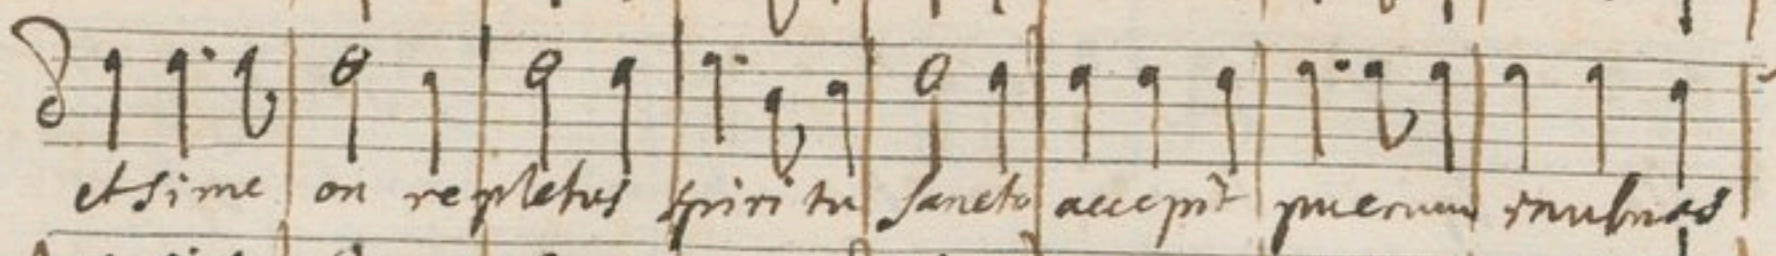 et sime on repletus spiritu sancto accepit puerum inulnas